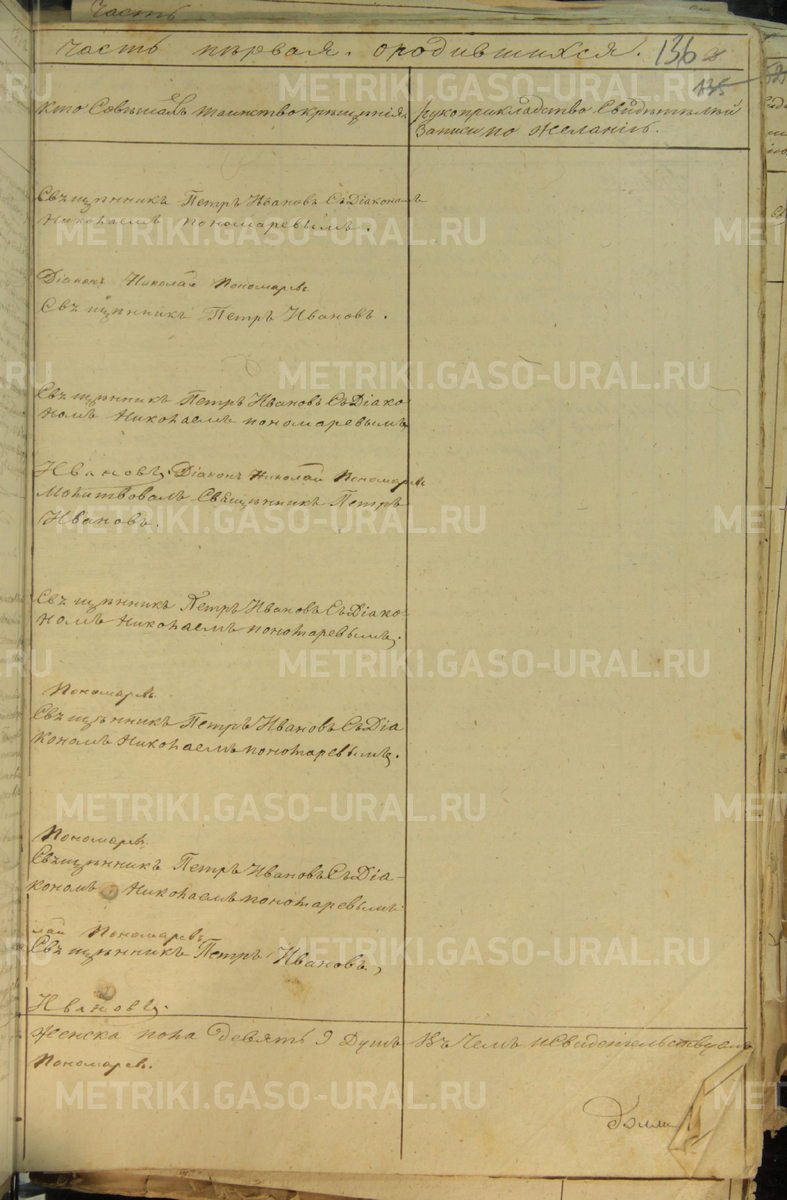 Часть
Часть первая. о родившихся. 136
135
Кто совершалъ таинство крещенія.
рукоприкладство свидетелей
записи по желанію.
Свѣщенникъ Петръ Ивановъ съ Діакономъ
Николаемъ Пономаревымъ.
Діаконъ Николай Пономаревъ
Свѣщенникъ Петръ Ивановъ.
Свѣщенникъ Петръ Ивановъ съ Діако-
номъ Николаемъ Пономаревымъ
Ивановъ. Діаконъ Николай Пономаревъ
Молитвовалъ Свѣщенникъ Петръ
Ивановъ.
Свѣщенникъ Петръ Ивановъ съ Діако-
номъ Николаемъ Пономаревымъ.
Пономаревъ
Свѣщенникъ Петръ Ивановъ съ Діа
кономъ Николаемъ Пономаревымъ.
Пономаревъ
Свѣщенникъ Петръ Ивановъ съ Діа-
кономъ Николаемъ Пономаревымъ.
лай Пономаревъ
Свѣщенникъ Петръ Ивановъ,
Ивановъ.
женска пола девять 9 душъ Въ чемъ и Свидетельствуемъ
Пономарев.
METRIKI.GASO-URAL.RU